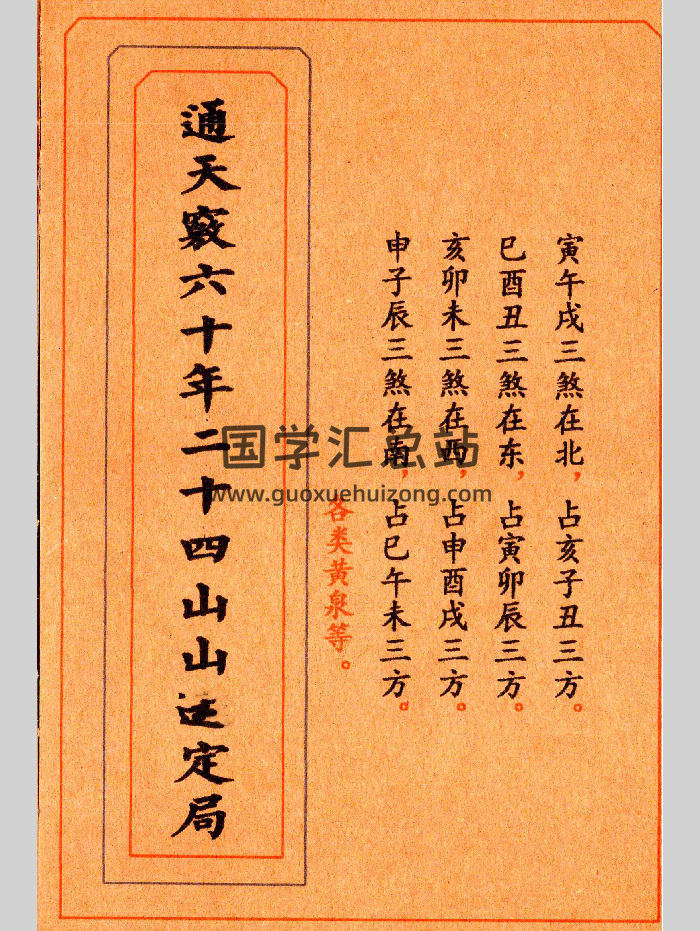 寅午戌三煞在北，占亥子丑三方。
巳酉丑三煞在东，占寅卯辰三方。
亥卯未三煞在西，占申酉戌三方。
申子辰三煞在南，占巳午未三方。
各类黄泉等。
通天窍六十年二十四山山运定局
国学汇总站
www.guoxuehuizong.com